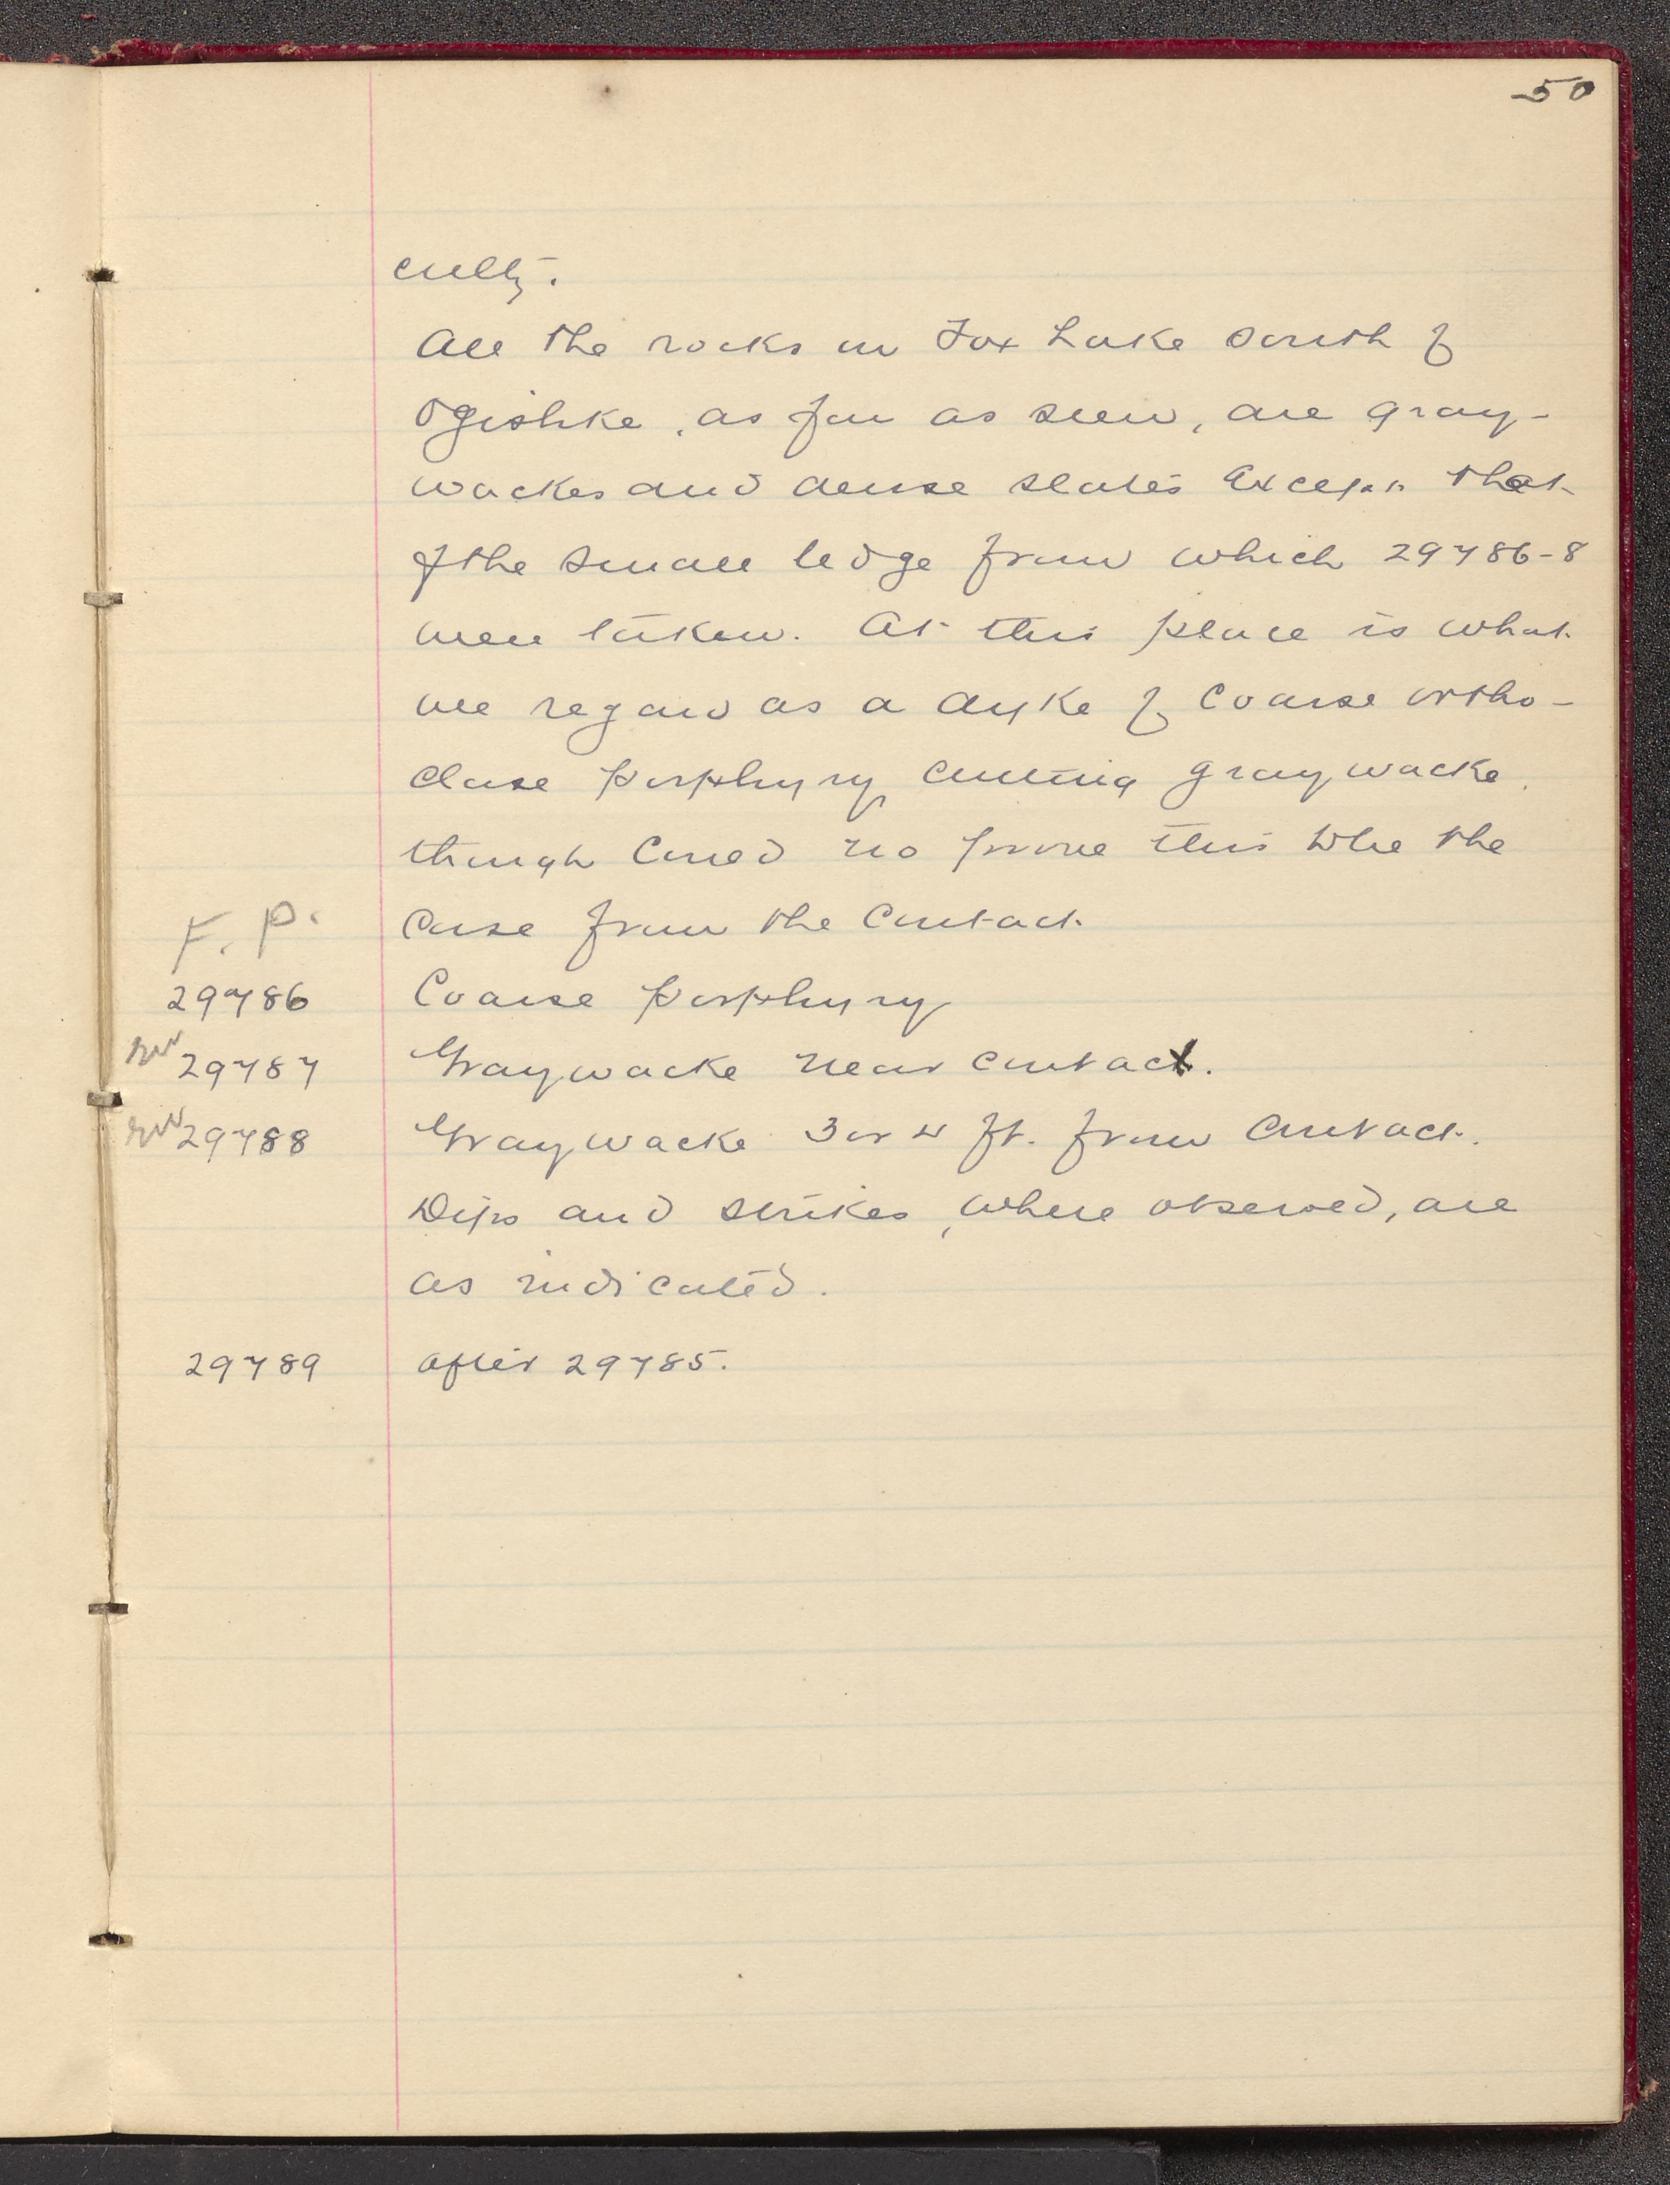 50
culty.
All the rocks on Fox Lake South of
Ogishke, as far as seen, are gray-
wackes and dense slates except that
of the small ledge from which 29786-8
were taken. At this place is what
we regard as a dyke of coarse ortho-
clase porphyry cutting graywacke,
though could no prove this to be the
F. P. case from the contact.
29786 Coarse porphyry
29787 Graywacke near contact.
29788 Graywacke 3 or 4 ft. from contact.
Dips and strikes, where observed, are
as indicated.
29789 after 29785.